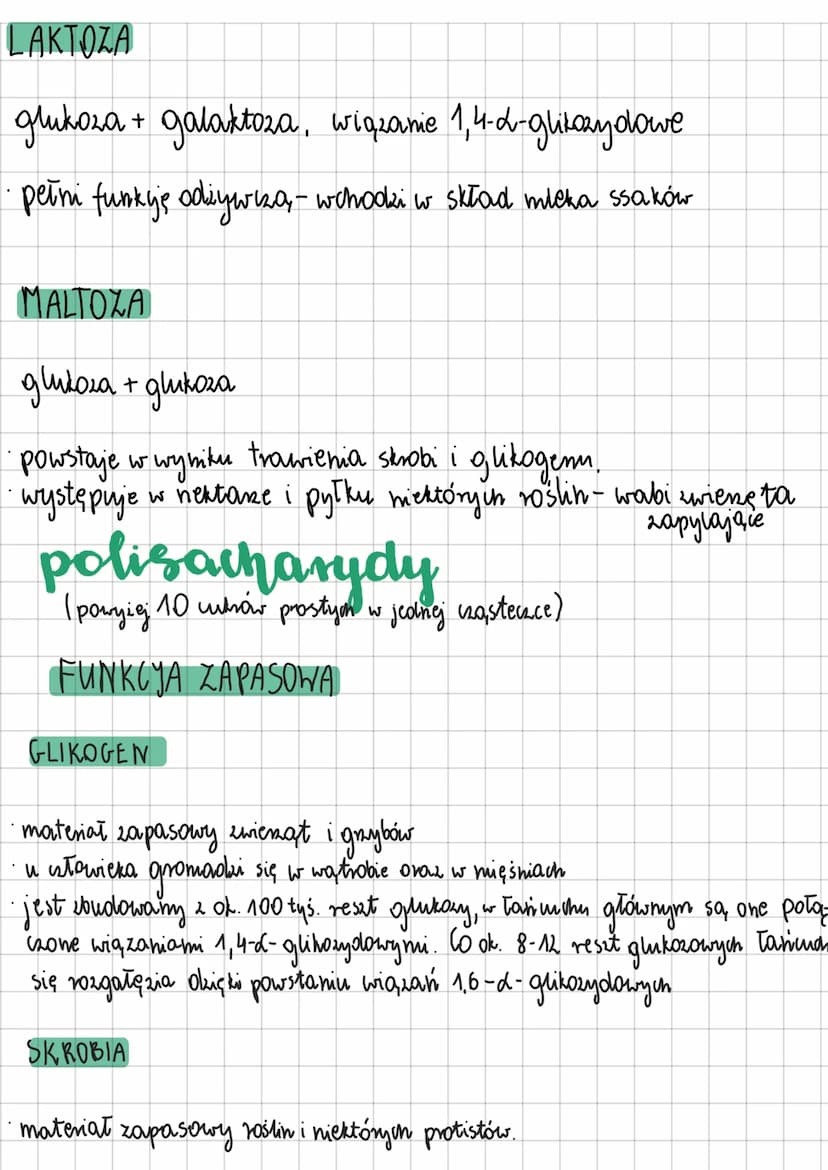 LAKTOZA
glukoza + galaktoza, wiązanie 1,4-α-glikozydowe
· pełni funkcję odżywczą, - wchodzi w skład mleka ssaków
MALTOZA
glukoza + glukoza
· powstaje w wyniku trawienia skrobi i glikogenu.
· występuje w nektarze i pyłku niektórych roślin - wabi zwierzęta
zapylające
polisacharydy
(powyżej 10 cukrów prostych w jednej cząsteczce)
FUNKCJA ZAPASOWA
GLIKOGEN
· materiał zapasowy zwierząt i grzybów
· u człowieka gromadzi się w wątrobie oraz w mięśniach
· jest zbudowany z ok. 100 tyś. reszt glukozy, w łańcuchu głównym są one połą-
czone wiązaniami 1,4-α-glikozydowymi. Co ok. 8-12 reszt glukozowych łańcuch
się rozgałęzia dzięki powstaniu wiązań 1,6-α-glikozydowych
SKROBIA
· materiał zapasowy roślin i niektórych protistów.